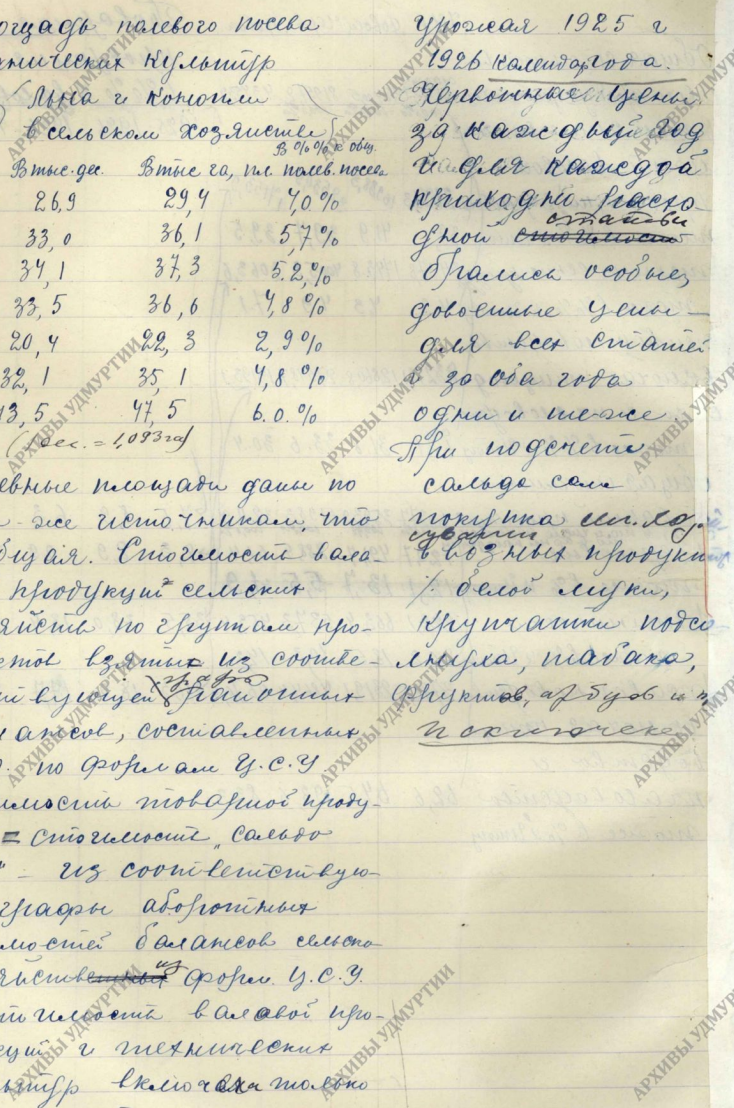 ощадь полевого посева
хнических культур
Льна и конопли
в сельском хозяйстве
В тыс. дес. В тыс га, В %% к общ. пл. полев. посева
26,9 29,4 4,0%
33,0 36,1 5,7%
34,1 37,3 5.2,%
33,5 36,6 4,8%
20,4 22,3 2,9%
32,1 35,1 4,8%
43,5 47,5 6.0.%
(1 дес. = 1,093 га)
евные площади даны по
же источникам, что
бщая. Стоимость вало-
продукции сельских
яйств по группам про-
ктов взяты из соотве-
тствующей графы районных
лансов, составленных
по формам Ц.С.У
имость товарной проду-
= стоимость „сальдо
" - из соответствую-
графы аборотных
мостей балансов сельско
яйств из форм. Ц.С.У.
тоимость валовой про-
кции и технических
льтур включена только
урожая 1925 г
1926 календар. года.
Червонные цены
за каждый год
и для каждой
приходно-расхо-
дной статьи
брались особые,
довоенные цены -
для всех статей
и за оба года
одни и те-же.
При подсчете
сальдо сам
покупка
ввозных продукт
белой муки,
крупчатки подсо
лнуха, табака,
фруктов, арбузов и п
исключена
АРХИВЫ УДМУРТИИ